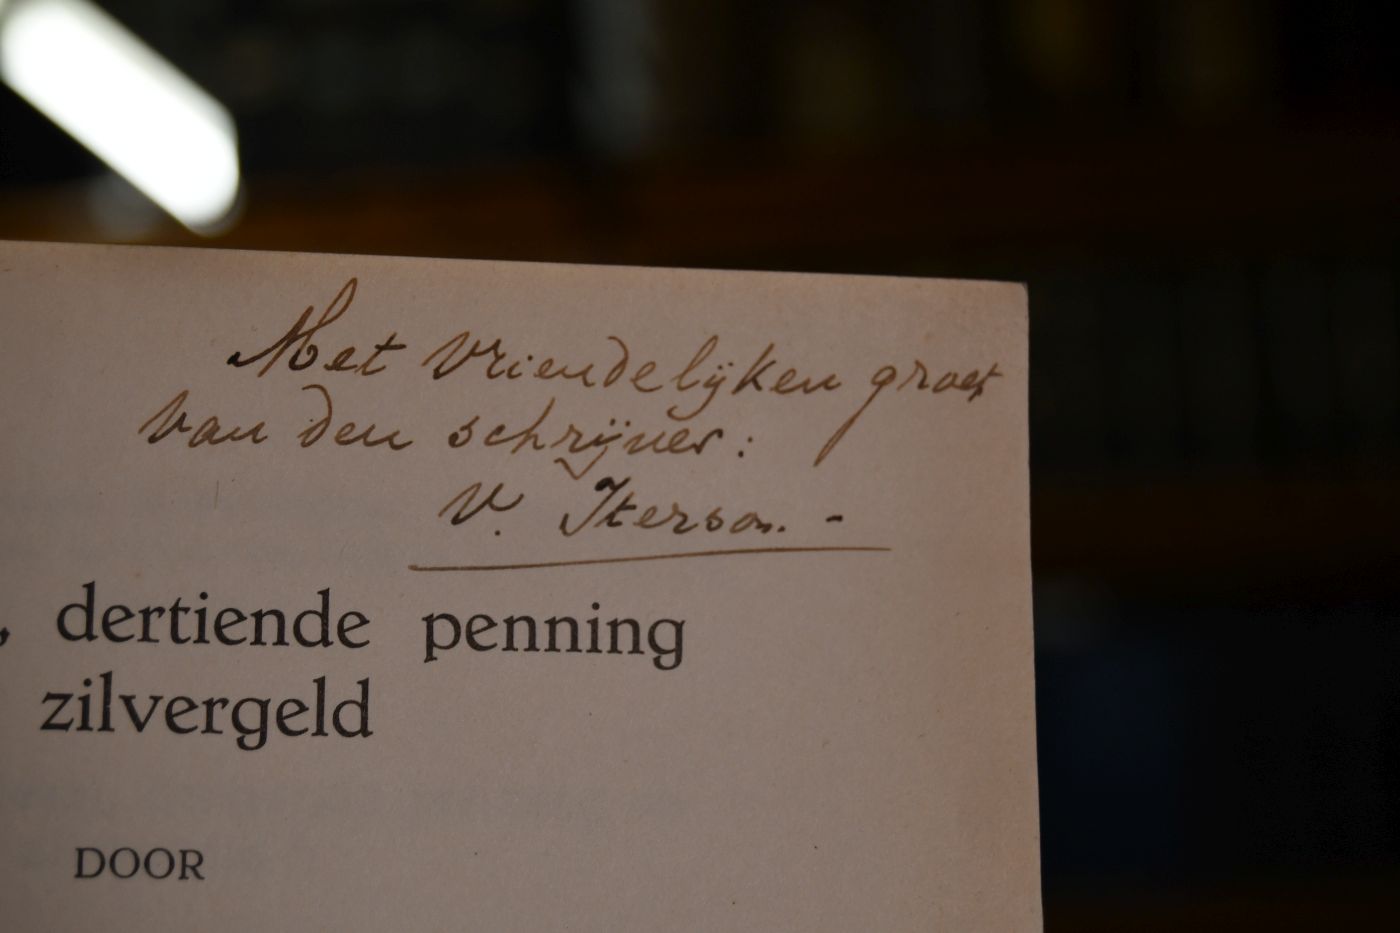 Met vriendelijken groet
van den schrijver:
V. Iterson. -
, dertiende penning
zilvergeld
DOOR